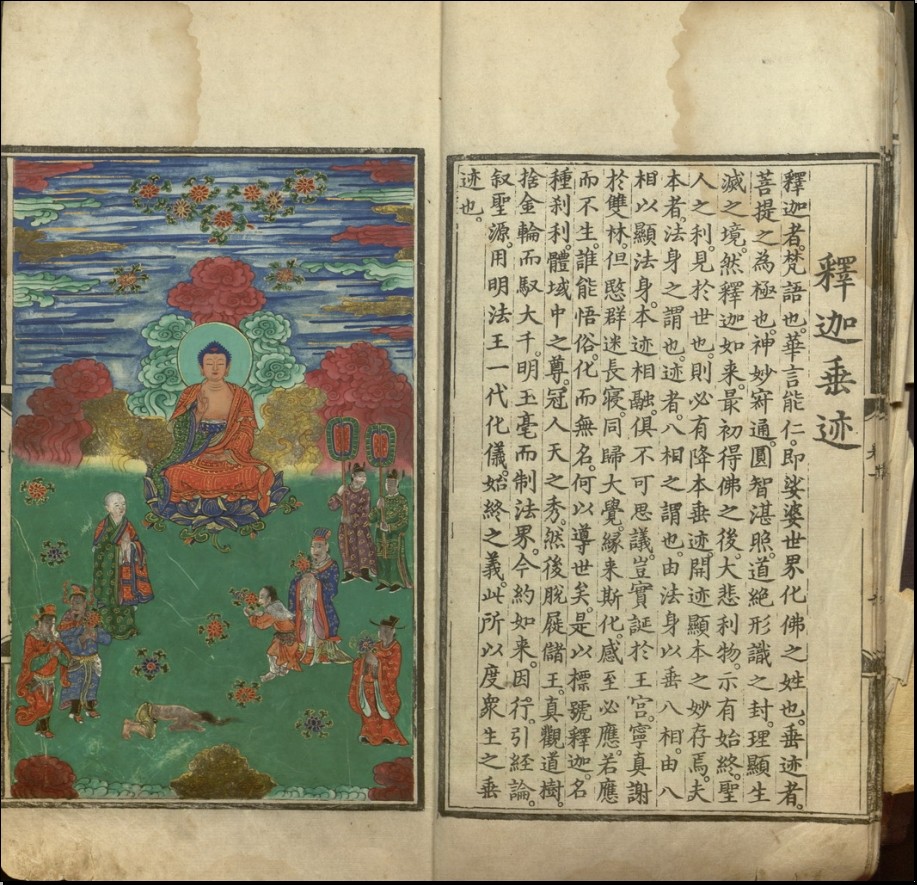 釋迦垂迹
釋迦者。梵語也。華言能仁。即娑婆世界化佛之姓也。垂迹者。
菩提之為極也。神妙寂通。圓智湛照。道絶形識之封。理顯生
滅之境。然釋迦如来。最初得佛之後。大悲利物。示有始終。聖
人之利。見於世也。則必有降本垂迹。開迹顯本之妙存焉。夫
本者。法身之謂也。迹者。八相之謂也。由法身以垂八相。由八
相以顯法身。本迹相融。俱不可思議。豈實誕於王宫。寧真謝
於雙林。但愍群迷長寢。同歸大覺。緣来斯化。感至必應。若應
而不生。誰能悟俗。化而無名。何以導世矣。是以標號釋迦。名
種刹利。體域中之尊。冠人天之秀。然後脫屣儲王。真觀道樹。
捨金輪而馭大千。明玉毫而制法界。今約如来。因行。引経論。
叙聖源。用明法王一代化儀。始終之義。此所以度衆生之垂
迹也。